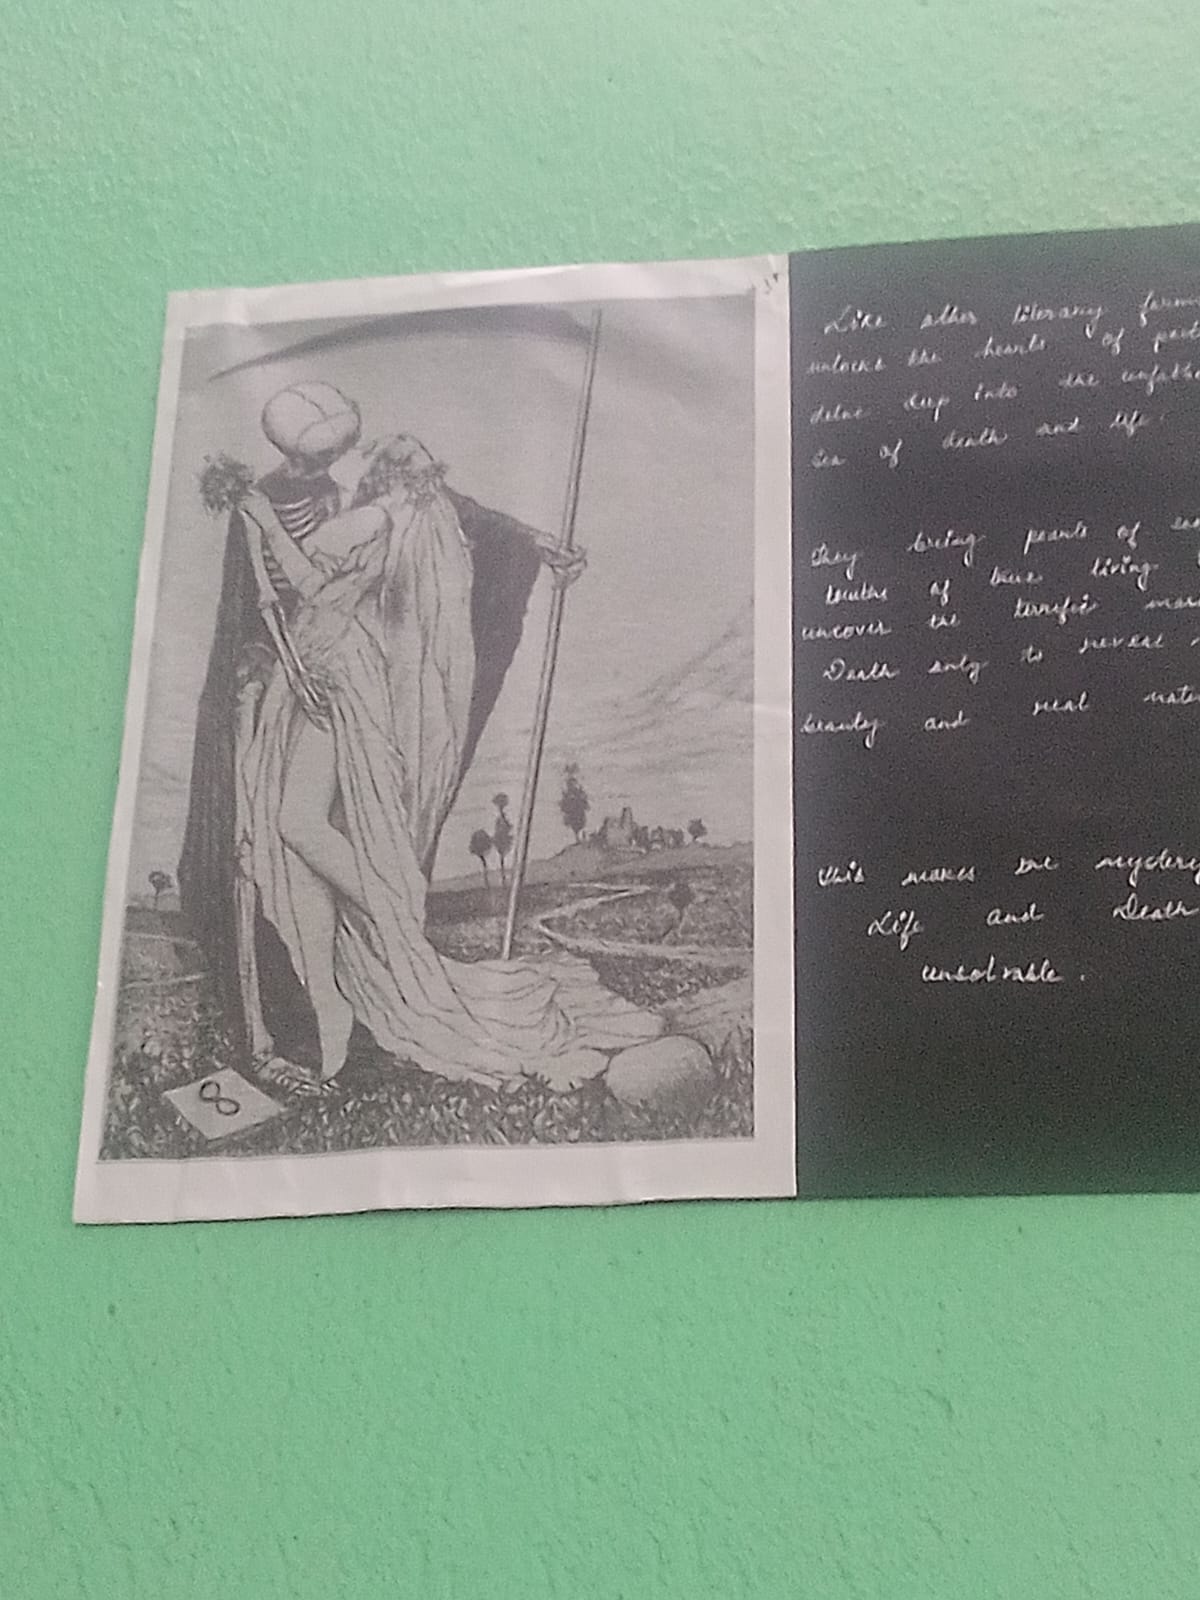 8
Like other literary
unlocks the hearts of
delve deep into the
Sea of death and life.
They bring pearls of
truths of true living
uncover the terrific
Death only to reveal
beauty and real
This makes the mystery
Life and Death
unsolvable.